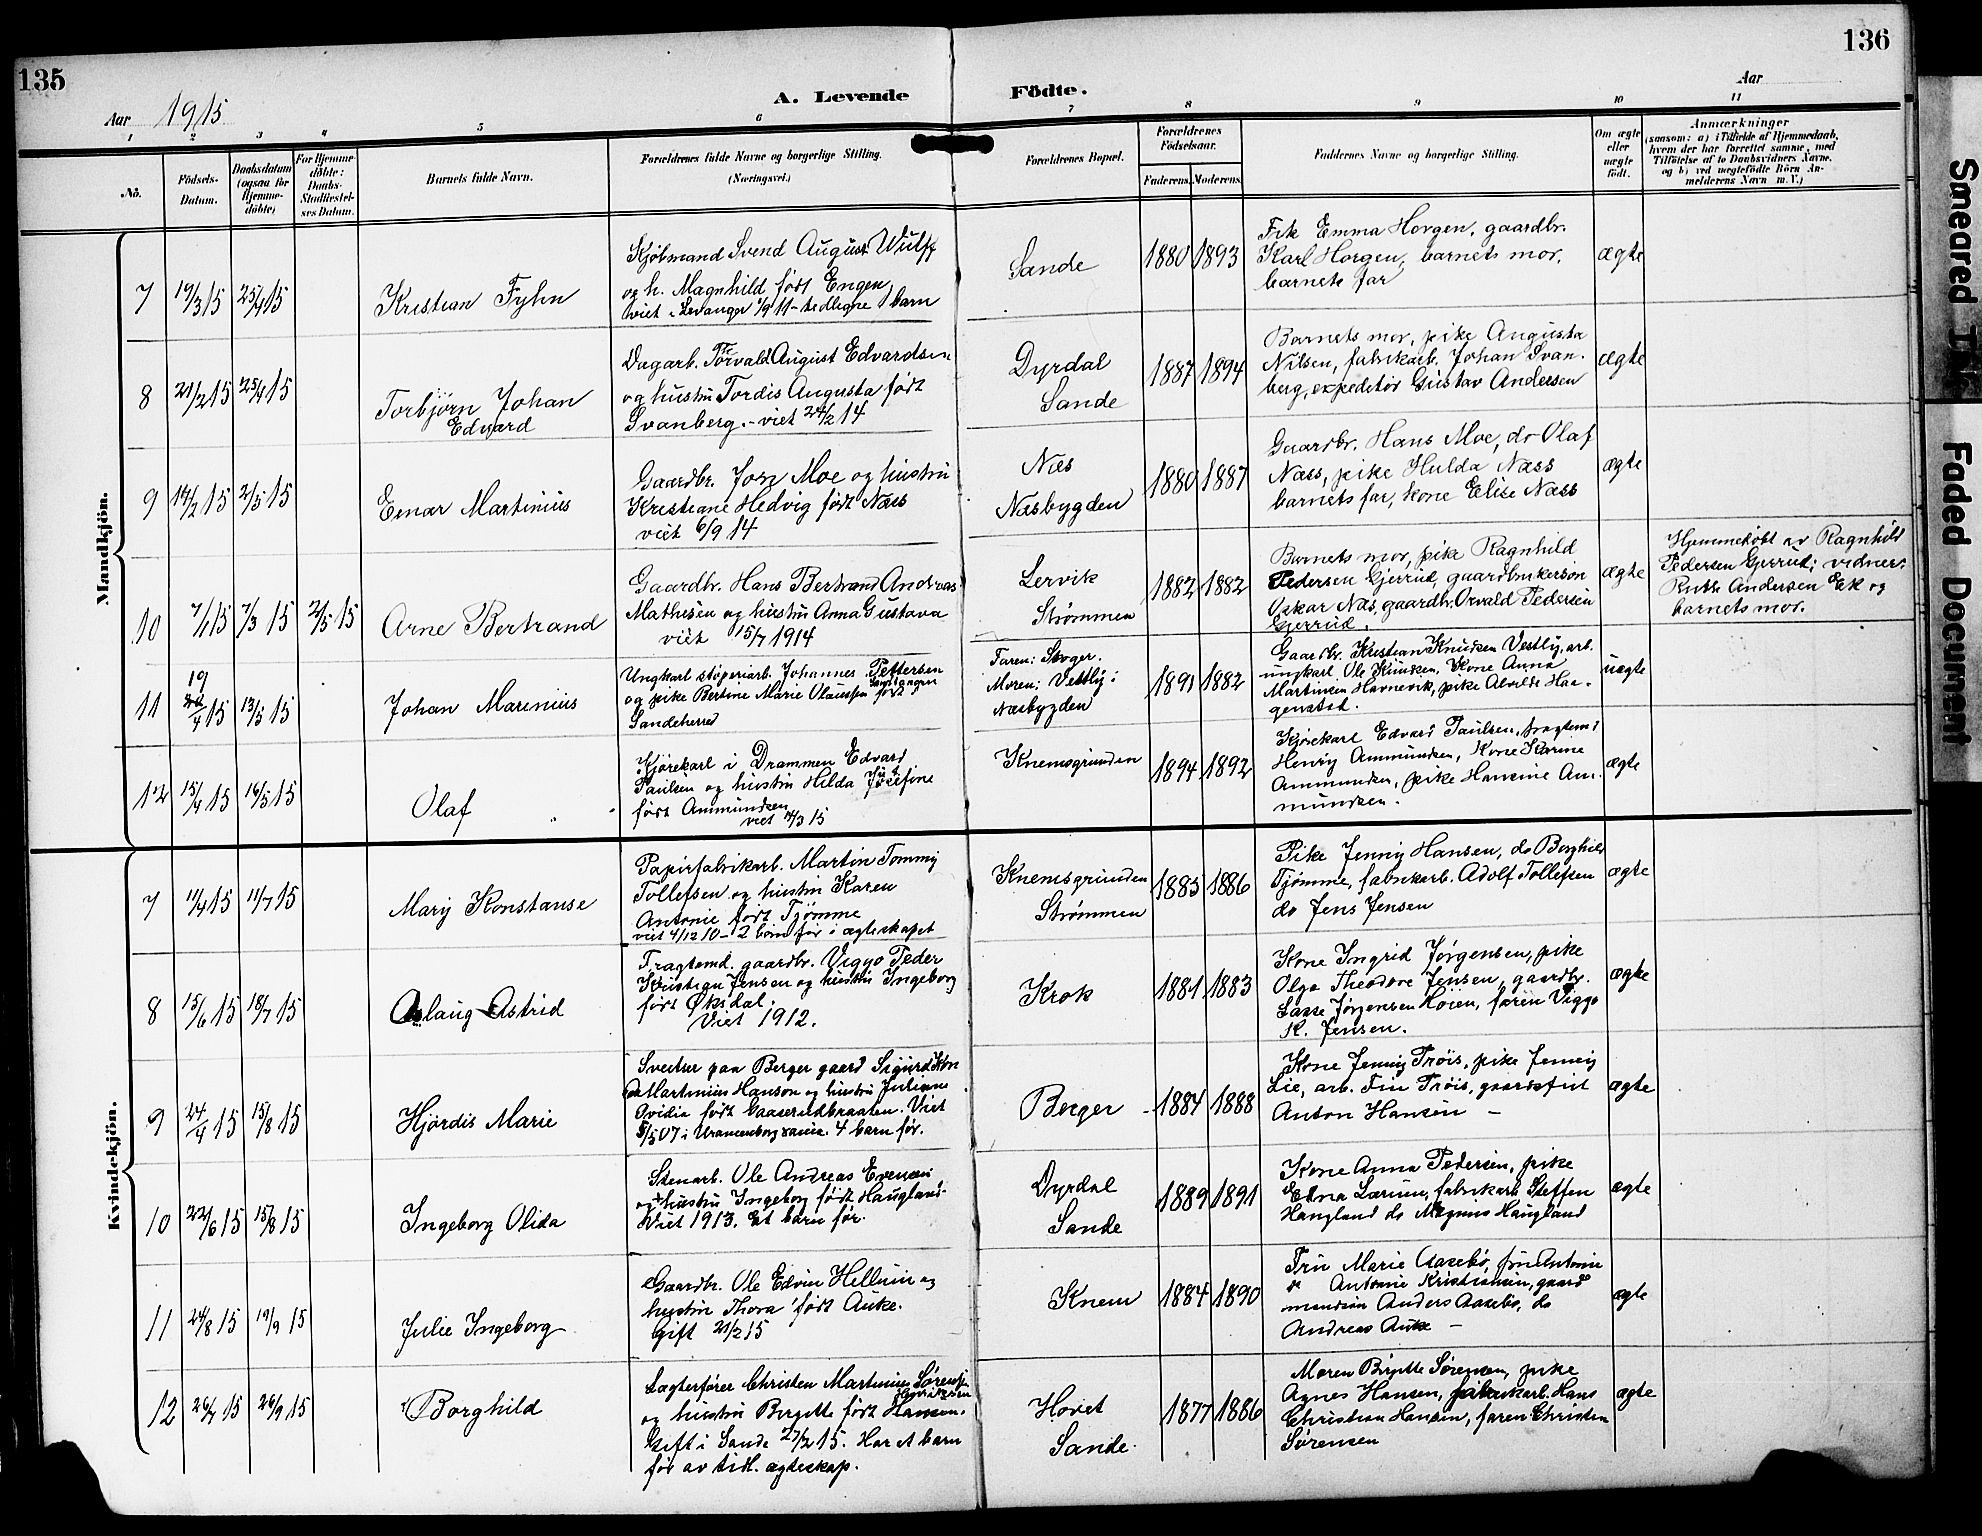 135
136
Aar 1915
A. Levende Födte.
Aar
1 2 3 4 5 6 7 8 9 10 11
No.
Födsels-Datum.
Daabsdatum (ogsaa for Hjemme-döbte)
For Hjemme-döbte: Daabs-Stadfæstel-ses Datum.
Barnets fulde Navn.
Forældrenes fulde Navne og borgerlige Stilling.
(Næringsvei.)
Forældrenes Bopæl.
Forældrenes Födselsaar.
Faderens. Moderens.
Faddernes Navne og borgerlige Stilling.
Om ægte eller uægte födt.
Anmærkninger
(saasom: a) i Tilfælde af Hjemmedaab,
hvem der har forrettet samme, med
Tilföielse af to Daabsvidners Navne.
og b) ved uægtefödte Börn An-
melderens Navn m. V.)
Mandkjön.
7 19/3 15 25/4 15
Kristian Fyhn
Kjøbmand Svend August Wulff
og h. Magnhild født Engen,
viet i Levanger 1/9 11 - tidligere 1 barn
Sande
1880 1893
Frk Emma Horgen, gaardbr.
Karl Horgen, barnets mor,
barnets far
ægte
8 21/2 15 25/4 15
Torbjörn Johan
Edvard
Dagarb. Torvald August Edvardsen
og hustru Tordis Augusta født
Svanberg. - viet 24/2 14
Dyrdal
Sande
1887 1894
Barnets mor, pike Augusta
Nilsen, fabrikarb. Johan Svan-
berg, expeditør Gustav Andersen
ægte
9 14/2 15 2/5 15
Einar Martinius
Gaardbr. Jorn Moe og hustru
Kristiane Hedvig født Næs
viet 6/9 14
Næs
Næsbygden
1880 1887
Gaardbr. Hans Moe, do Olaf
Næss, pike Hulda Næss
barnets far, kone Elise Næss
ægte
10 7/1 15 7/3 15 2/5 15
Arne Bertrand
Gaardbr. Hans Bertrand Andreas
Mathisen og hustru Anna Gustava
viet 15/7 1914
Lervik
Strømmen
1882 1882
Barnets mor, pike Ragnhild
Pedersen Gjerrud, gaardbrukersøn
Oskar Næs, gaardbr. Orvald Pedersen
Gjerrud.
ægte
Hjemmedøbt av Ragnhild
Pedersen Gjerrud; vidner:
Ruth Andersen Ek og
barnets mor.
11 19/4 15 13/5 15
Johan Marinius
Ungkarl støperiarb. Johannes Pettersen
og pike Bertine Marie Olaussen født
Sandeherred
Faren: Skoger.
Moren: Vestly i
Næsbygden
1891 1882
Gaardbr. Kristian Knudsen Vestly, arb.
ungkarl Ole Knudsen, Kone Anna
Martinsen Havnevik, pike Alvilde Haa-
genstad.
uægte
12 15/4 15 16/5 15
Olaf
Kjørekarl i Drammen Edvard
Paulsen og hustru Hilda Josefine
født Ammundsen
viet 14/3 15
Knemsgrunden
1894 1892
Kjørekarl Edvard Paulsen, fragtemd
Henry Ammundsen, Kone Karine
Ammundsen, pike Hansine Am-
mundsen.
ægte
Kvindekjön.
7 11/4 15 11/7 15
Mary Konstanse
Papirfabrikarb. Martin Tommy
Tollefsen og hustru Karen
Antonie født Tjømme
viet 4/12 10 - 2 børn før i ægteskapet
Knemsgrunden
Strømmen
1885 1886
Pike Jenny Hansen, do Borghild
Tjømme, fabrikarb. Adolf Tollefsen
do Jens Jensen
ægte
8 15/6 15 18/7 15
Aslaug Astrid
Fragtemd. gaardbr. Viggo Peder
Kristian Jensen og hustru Ingeborg
født Øksdal.
Viet 1912.
Krok
1881 1883
Kone Ingrid Jørgensen, pike
Olga Theodore Jensen, gaardbr.
Lasse Jørgensen Høien, faren Viggo
K. Jensen.
ægte
9 24/4 15 15/8 15
Hjørdis Marie
Sveitser paa Berger gaard Sigurd
Martinius Hanson og hustru Juliane
Ovidia født Gaaserudbraaten. Viet
5/5 07 i Uranienborg 4 barn før.
Berger
1884 1888
Kone Jenny Trøis, pike Jenny
Lie, arb. Fin Trøis, gaardsfut
Anton Hansen -
ægte
10 22/6 15 15/8 15
Ingeborg Olida
Stenarb. Ole Andreas Evensen
og hustru Ingeborg født Haugland.
Viet 1913. Et barn før.
Dyrdal
Sande
1889 1891
Kone Anna Pedersen, pike
Edna Lærum, fabrikarb Steffen
Haugland do Magnus Haugland
ægte
11 24/8 15 19/9 15
Julie Ingeborg
Gaardbr. Ole Edvin Hellum og
hustru Thora født Auke.
Gift 21/2 15
Knem
1884 1890
Fru Marie Aasebø, fru Antonie
Antonie Kristiansen, gaard
mandsøn Anders Aasebø, do
Andreas Auke -
ægte
12 26/7 15 26/9 15
Borghild
Lægterfører Christen Martinius Sørensen
og hustru Bergitte født Hansen.
Gift i Sande 27/2 15. Har et barn
før av tidl. ægteskap.
Hovet
Sande.
1877 1886
Moren Birgitte Sørensen, pike
Agnes Hansen, fabrikarb. Hans
Christian Hansen, faren Christen
Sørensen
ægte
Smeared Ink
Faded Document